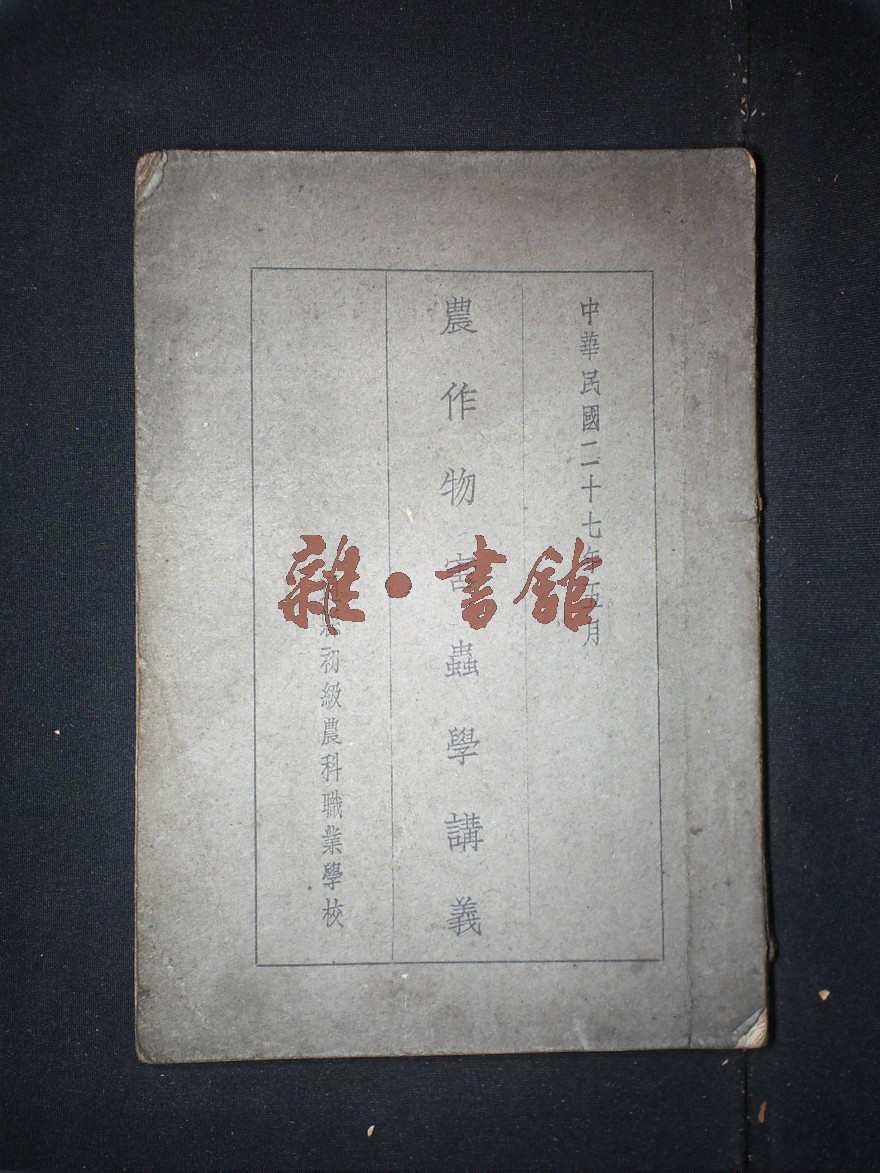 中華民國二十七年五月
農作物害蟲學講義
初級農科職業學校
雜·書館